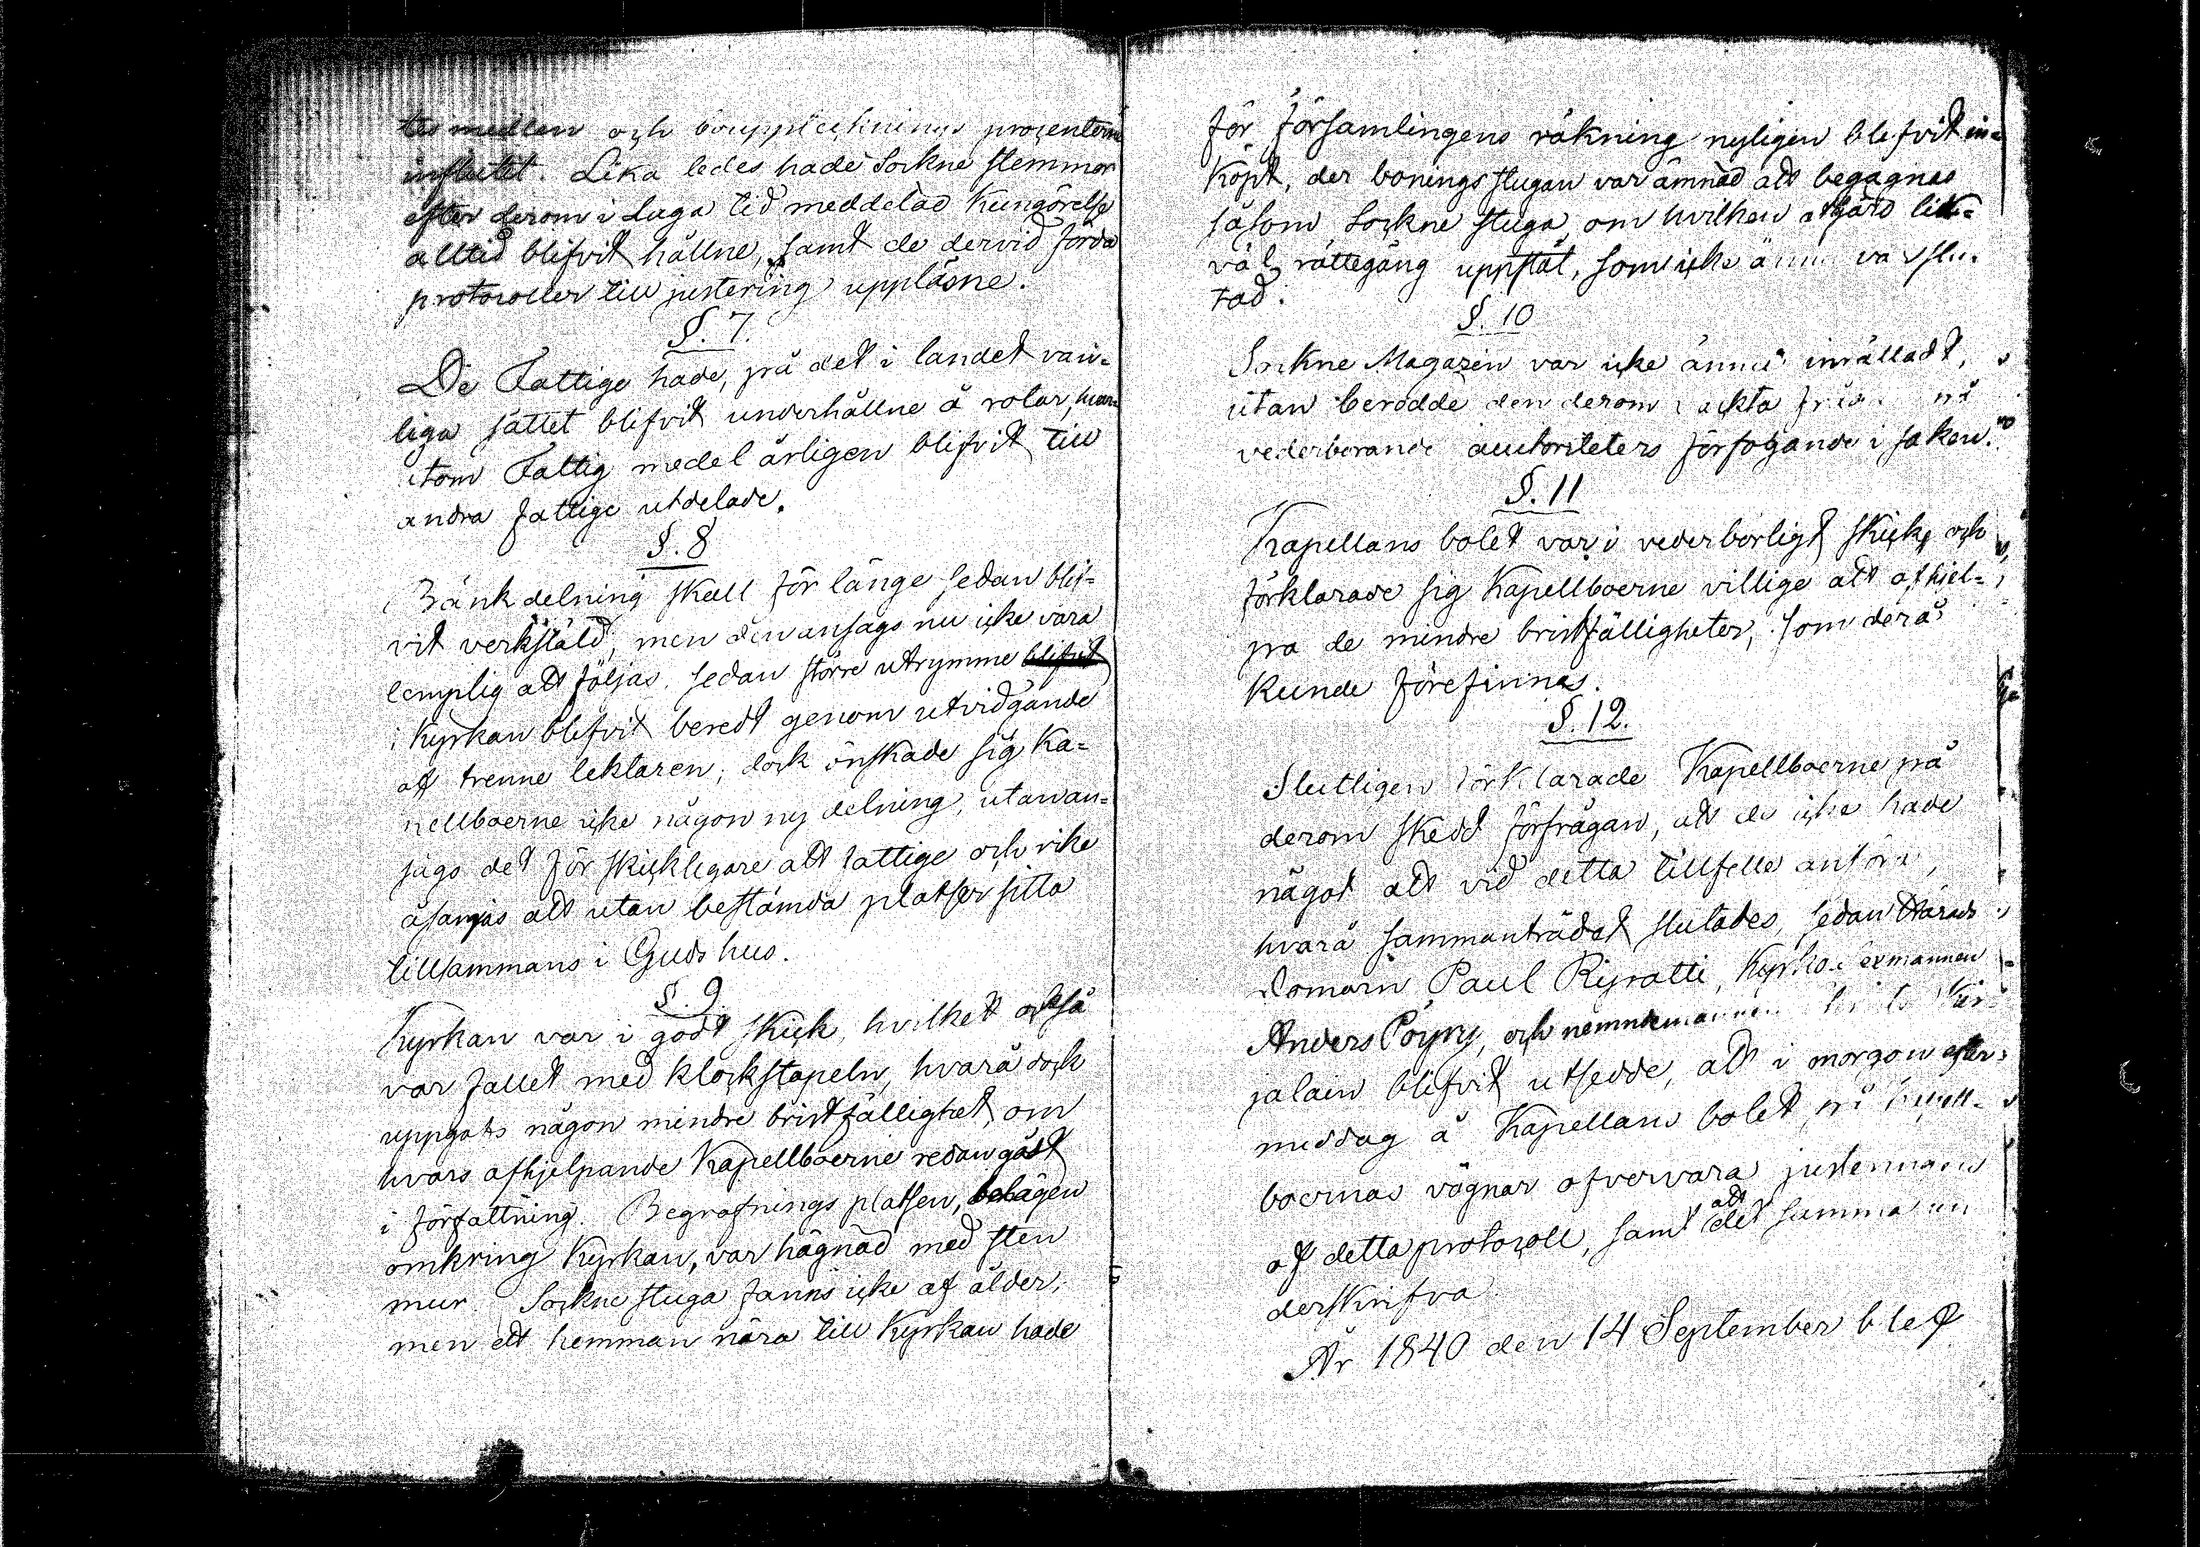 tes medlen och bouppteknings procenterne
influtit. Lika ledes hade Sockne stemmor
efter derom i Laga tid meddelad Kungörelse
alltid blifvit hållne, samt de dervid förda
protocoller till justering uppläsne.
§. 7.
De Fattige hade, på det i landet van-
liga sättet blifvit underhållne å rotar, hvar-
utom Fattig medel årligen blifvit till
andra fattige utdelade.
§. 8
Bänkdelning skall för länge sedan blif-
vit verkstäld, men den ansags nu icke vara
lemplig att följas, sedan större utrymme blifvit
i Kyrkan blifvit beredt genom utvidgande
af trenne lektaren; dock önskade sig Ka-
pellboerne icke någon ny delning, utan an-
sågo det för skickligare att fattige och rike
åsamjas att utan bestämda platser sitta
tillsammans i Guds hus.
§. 9
Kyrkan var i godt skick, hvilket också
var fallet med klockstapeln, hvarå dock
uppgafs någon mindre bristfällighet, om
hvars afhjelpande Kapellboerne redan gådt
i författning. Begrafnings platsen, belägen
omkring Kyrkan, var hägnad med sten
mur. Sockne stuga fanns icke af ålder,
men ett hemman nära till Kyrkan hade
för Församlingens räkning nyligen blifvit in-
köpt, der bonings stugan var ämnad att begagnas
såsom Sockne stuga, om hvilken åtgärd lik-
väl rättegång uppstått, som icke ännu var slu-
tad.
§. 10
Sockne Magazin var icke ännu inrättadt,
utan berodde den derom väckta fråga på
vederbörande auctoriteters förfogande i saken.
§. 11
Kapellans bolet var i vederbörligt skick, och
förklarade sig Kapellboerne villige att afhjel-
pa de mindre bristfälligheter, som derå
kunde förefinnas.
§. 12.
Slutligen förklarade Kapellboerne på
derom skedd förfrågan, att de icke hade
något att vid detta tillfelle anföra,
hvarå sammanträdet slutades, sedan Härads
Domarn Paul Ryratti, Kyrko vermannen
Anders Pöyry, och nämndemannen
jalain blifvit utsedde, att i morgon efter-
middag å Kapellans bolet på Kapell-
boernas vägnar öfvervara justeringen
af detta protocoll, samt att det samma un
derskrifva
År 1840 den 14 September blef